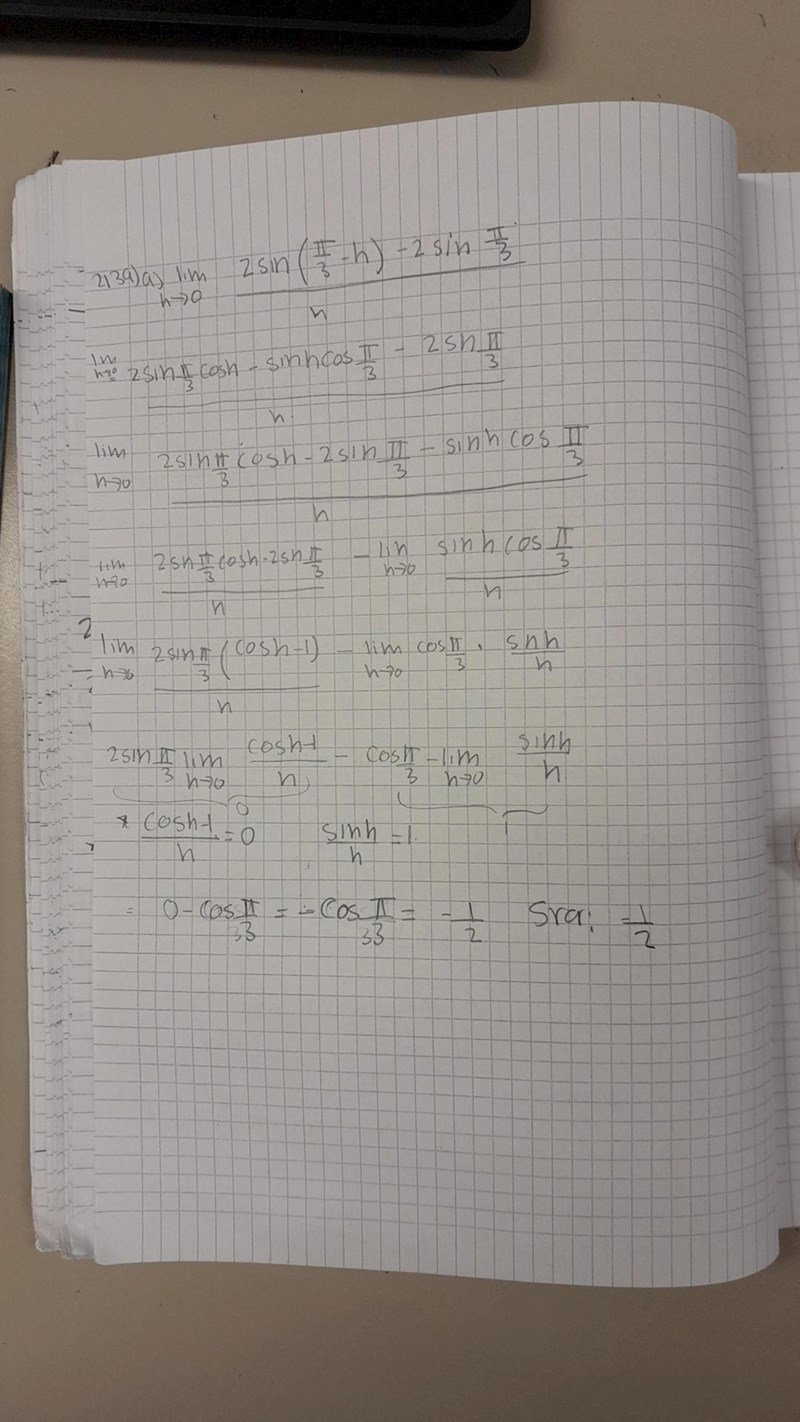 2139)a) lim h→0 (2sin(π/3 - h) - 2sin π/3)/h
lim h→0 (2sin π/3 cosh - sinh cos π/3 - 2sin π/3)/h
lim h→0 (2sin π/3 cosh - 2sin π/3 - sinh cos π/3)/h
lim h→0 (2sin π/3 cosh - 2sin π/3)/h - lim h→0 (sinh cos π/3)/h
lim h→0 (2sin π/3 (cosh-1))/h - lim h→0 cos π/3 · sinh/h
2sin π/3 lim h→0 (cosh-1)/h - cos π/3 - lim h→0 sinh/h
0 1
* (cosh-1)/h = 0 sinh/h = 1
= 0 - cos π/3 = - cos π/3 = -1/2 Svar: -1/2